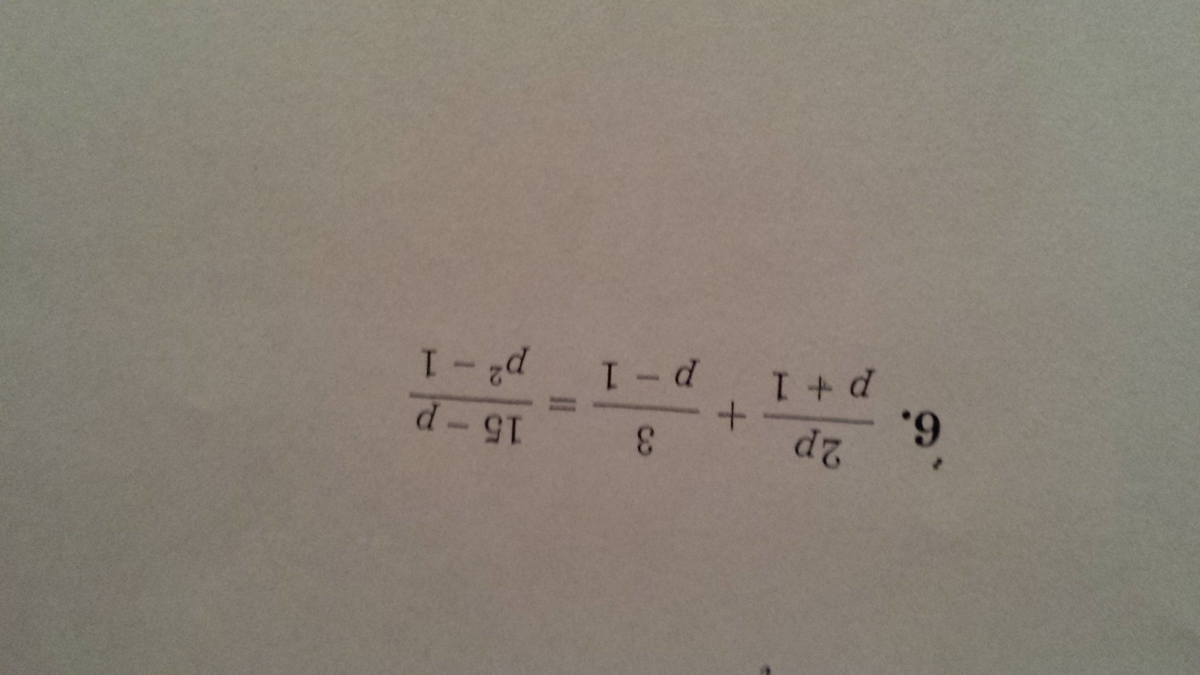 6. \frac{2p}{p + 1} + \frac{3}{p - 1} = \frac{15 - p}{p^2 - 1}